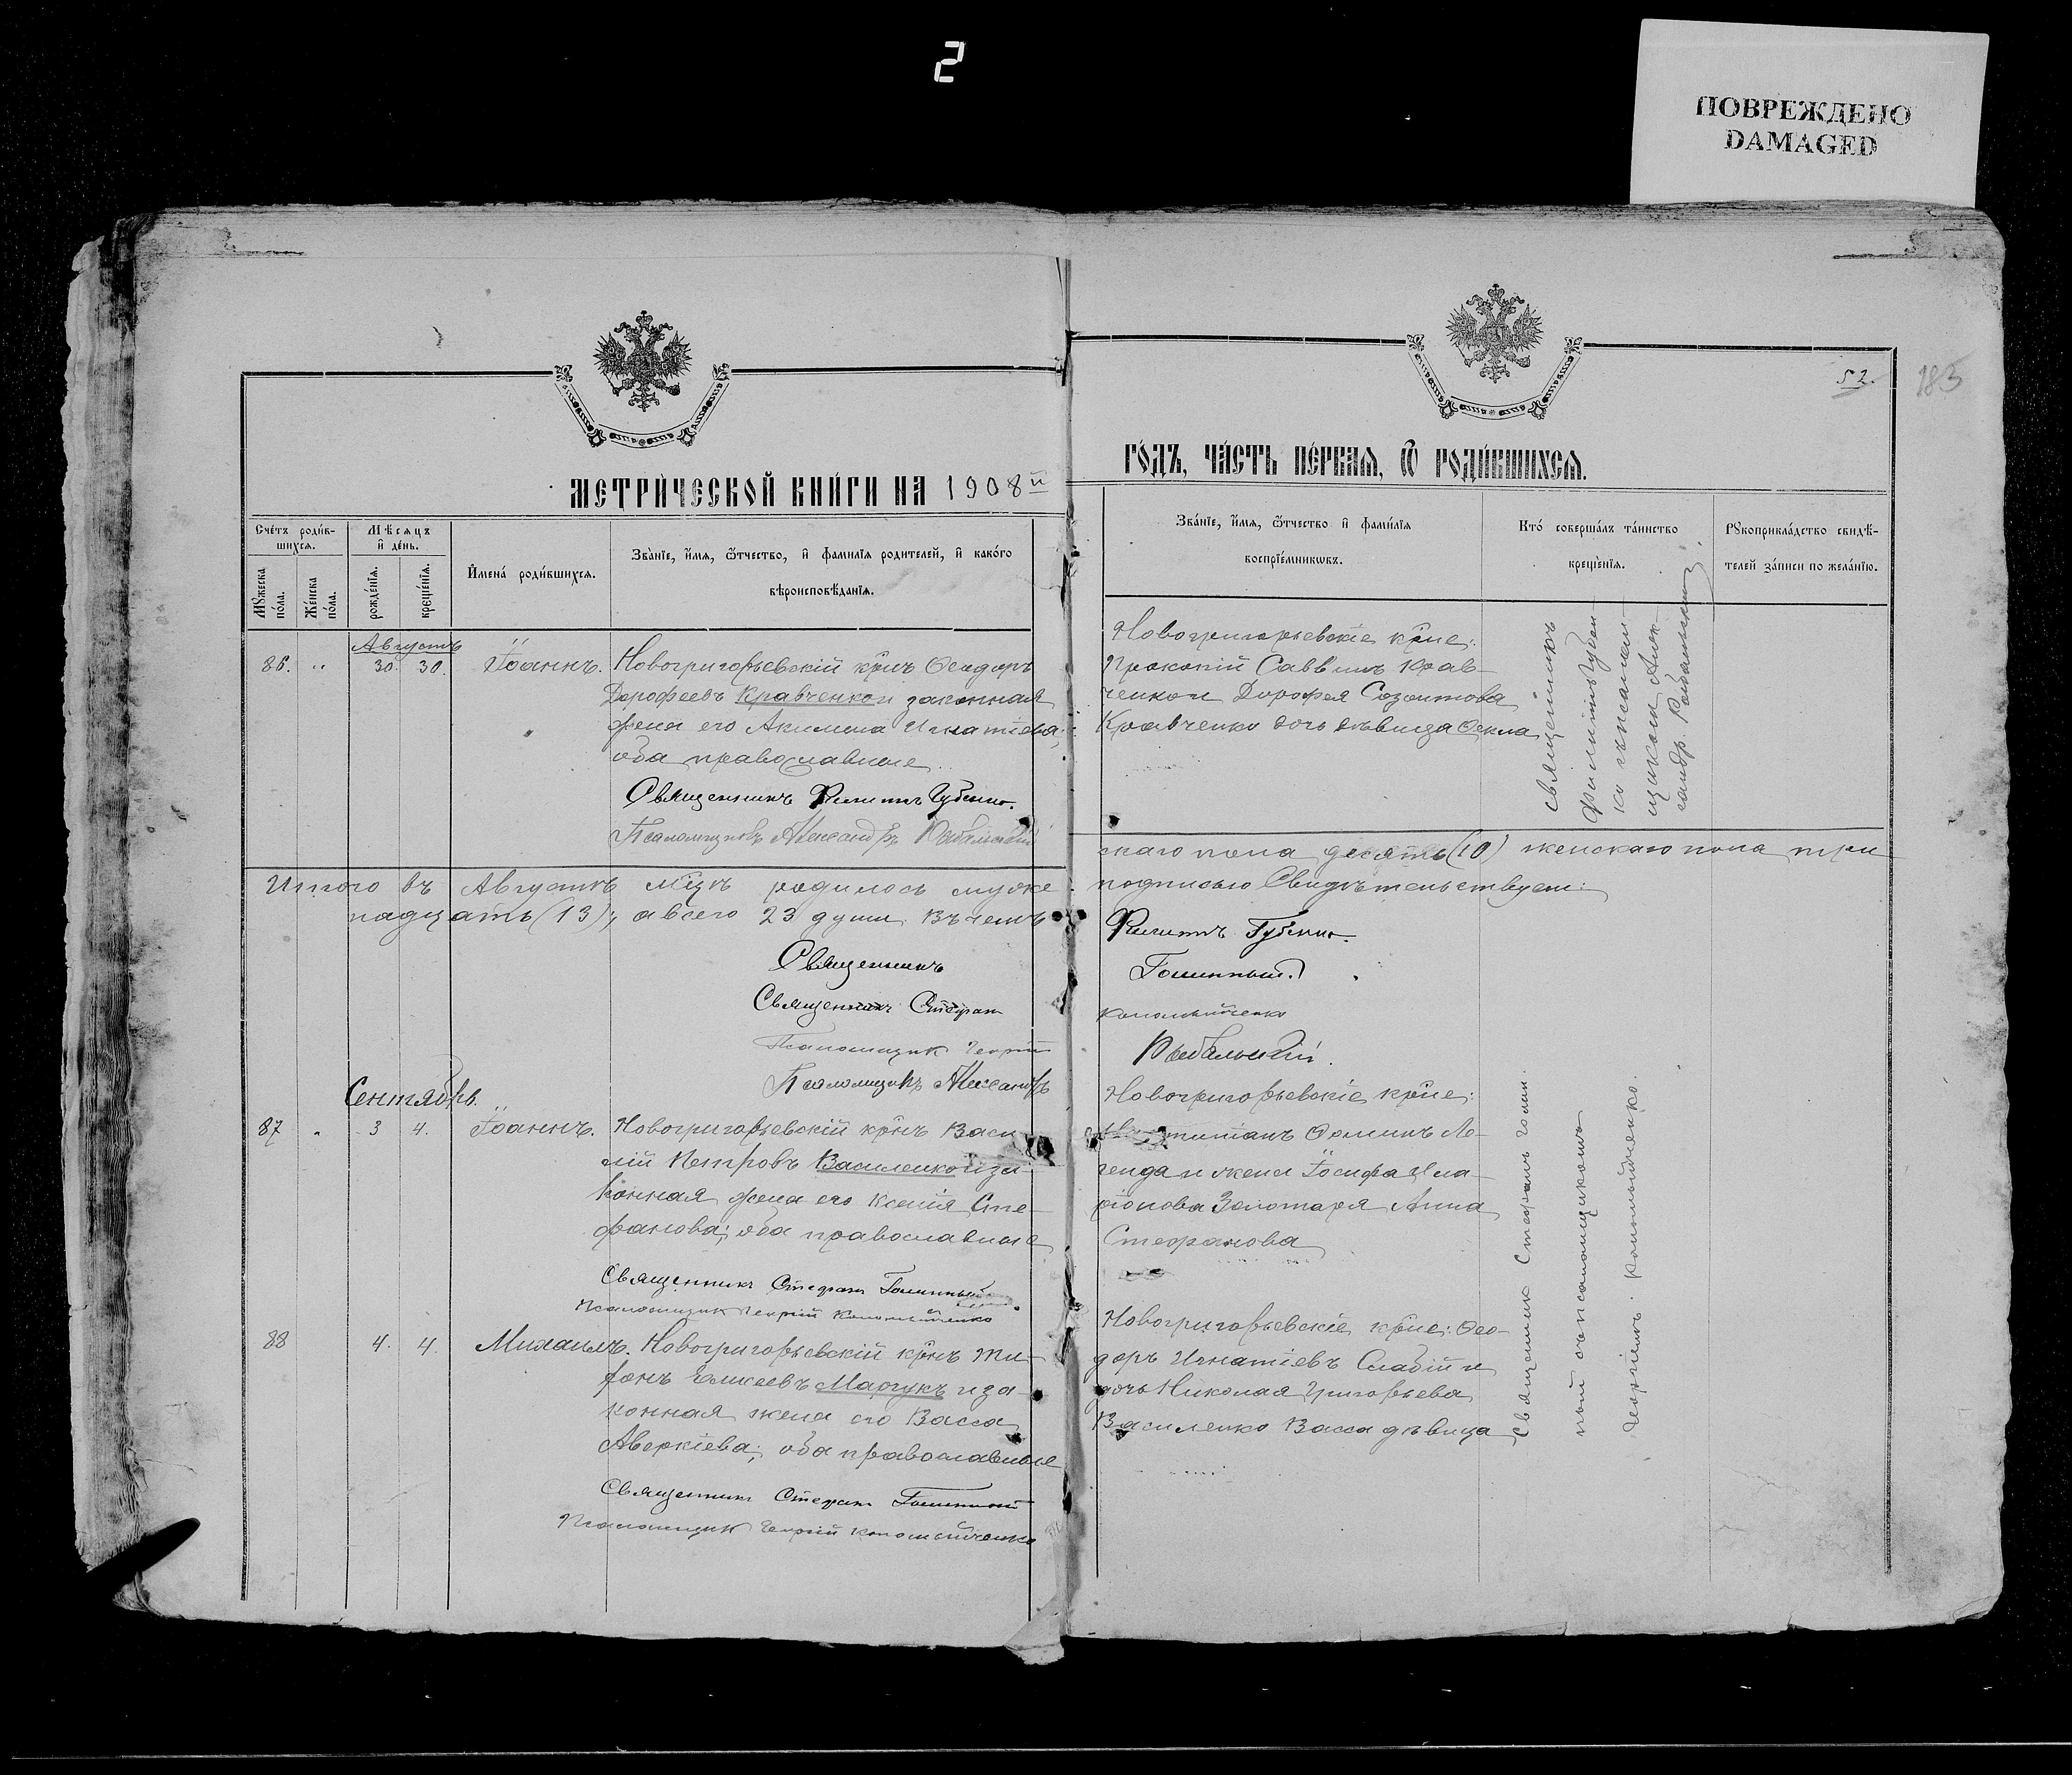 2
ПОВРЕЖДЕНО
DAMAGED
52.
183
МЕТРИ́ЧЕСКОЙ КНИ́ГИ НА 1908й
ГО́ДЪ, ЧА́СТЬ ПЕ́РВАѦ, Ѿ РОДИ́ВШИХСѦ.
Сче́тъ роди́в-
шихсѧ.
Мꙋ́жеска по́ла.
Же́нска по́ла.
Мѣ́сѧцъ
и҆ де́нь.
рожде́нїѧ.
креще́нїѧ.
И҆мена́ роди́вшихсѧ.
Зва́нїе, и҆́мѧ, ѻ҆́тчество, и҆ фами́лїѧ родителей, и҆ како́го
вѣроисповѣ́данїѧ.
Зва́нїе, и҆́мѧ, ѻ҆́тчество и҆ фами́лїѧ
воспрїе́мникѡвъ.
Кто́ соверша́лъ та́инство
креще́нїѧ.
Рꙋкоприкла́дство свидѣ́-
телей за́писи по жела́нїю.
Августъ
86. „ 30. 30. Іоаннъ. Новогригорьевскій крнъ Ѳеодоръ
Дорофеевъ Кравченко и законная
жена его Акилина Игнатіева;
оба православные
Священникъ Филиппъ Губенко.
Псаломщикъ Александръ Рыбальскій
Новогригорьевскіе крне:
Прокопій Саввинъ Крав-
ченко и Дорофея Созонтова
Кравченко дочь дѣвица Ѳекла
Священникъ
Филиппъ Губен-
ко съ псалом-
щикомъ Алек-
сандр. Рыбальскимъ
Итого въ Августѣ мцѣ родилось муже-
скаго пола десять (10) женскаго пола три
надцать (13); а всего 23 души. Въ чемъ
подписью Свидѣтельствуем:
Священникъ Филиппъ Губенко.
Священникъ Стефанъ Голинный.
Псаломщикъ Георгій Коломыйченко
Псаломщикъ Александръ Рыбальскій.
Сентябрь.
87 „ 3 4. Іоаннъ. Новогригорьевскій крнъ Васи-
лій Петровъ Василенко и за-
конная жена его Ксенія Сте-
фанова; оба православные
Священникъ Стефанъ Голинный
Псаломщикъ Георгій Коломыйченко
Новогригорьевскіе крне:
Ѳоминъ Ле-
генда и жена Іосифа Ила-
ріонова Золотаря Анна
Стефанова
88 4. 4. Михаилъ. Новогригорьевскій крнъ Ти-
фонъ Еликеевъ Марчукъ и за-
конная жена его Васса
Аверкіева; оба православные
Священникъ Стефанъ Голинный
Псаломщикъ Георгій Коломыйченко
Новогригорьевскіе крне: Ѳео-
доръ Игнатіевъ Слабій и
дочь Николая Григорьева
Василенко Васса дѣвица
Священник Стефанъ Голин-
ный съ псаломщикомъ
Георгіемъ Коломыйченко.